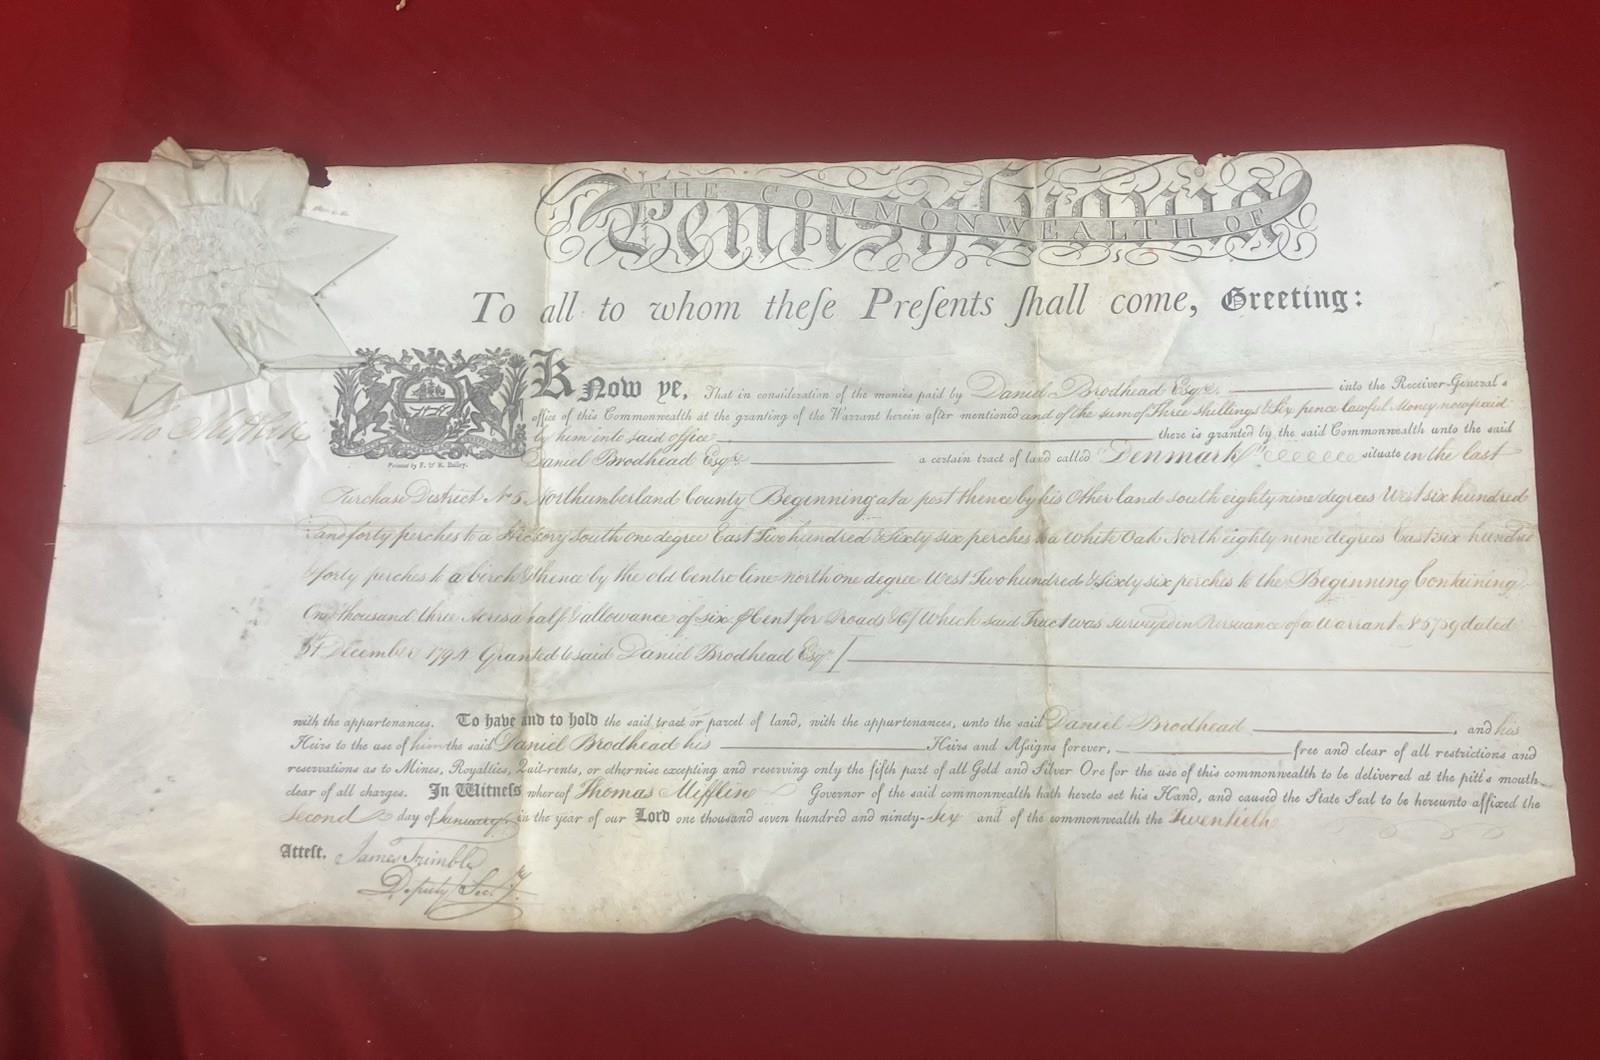 THE COMMONWEALTH OF
Pennsylvania
To all to whom theſe Preſents ſhall come, Greeting:
Know ye, That in consideration of the monies paid by Daniel Brodhead Esqr. into the Receiver-General's
office of this Commonwealth at the granting of the Warrant herein after mentioned and of the sum of Three shillings & Six pence lawful Money now paid
by him into said office there is granted by the said Commonwealth unto the said
Daniel Brodhead Esqr. a certain tract of land called "Denmark" situate in the last
Tho Mifflin
Printed by F. & R. Bailey.
Purchase District No 5 Northumberland County Beginning at a post thence by his Other land south eighty nine degrees West six hundred
and forty perches to a Hickory south one degree East Two hundred & Sixty six perches to a White Oak North eighty nine degrees East six hundred
& forty perches to a birch & thence by the old Centre line north one degree West Two hundred & Sixty six perches to the Beginning Containing
One thousand three Acres a half & allowance of six ⅌ Cent for Roads &c/ Which said Tract was surveyed in Pursuance of a Warrant No 5759 dated
December 1794 Granted to said Daniel Brodhead Esqr
with the appurtenances. To have and to hold the said tract or parcel of land, with the appurtenances, unto the said Daniel Brodhead, and his
Heirs to the use of him the said Daniel Brodhead his Heirs and Aſsigns forever, free and clear of all restrictions and
reservations as to Mines, Royalties, Quit-rents, or otherwise excepting and reserving only the fifth part of all Gold and Silver Ore for the use of this commonwealth to be delivered at the pitt's mouth
clear of all charges. In Witneſs whereof Thomas Mifflin Governor of the said commonwealth hath hereto set his Hand, and caused the State Seal to be hereunto affixed the
Second day of January in the year of our Lord one thousand seven hundred and ninety-Six and of the commonwealth the Twentieth
Atteſt. James Trimble
Deputy Secy.